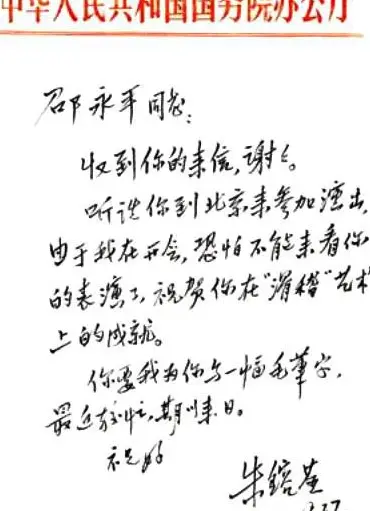 中华人民共和国国务院办公厅
邵永平同志:
收到你的来信,谢谢。
听说你到北京来参加演出,
由于我在开会,恐怕不能来看你
的表演了,祝贺你在“滑稽”艺术
上的成就。
你要我为你写一幅毛筆字,
最近较忙,期以来日。
祝好
朱镕基